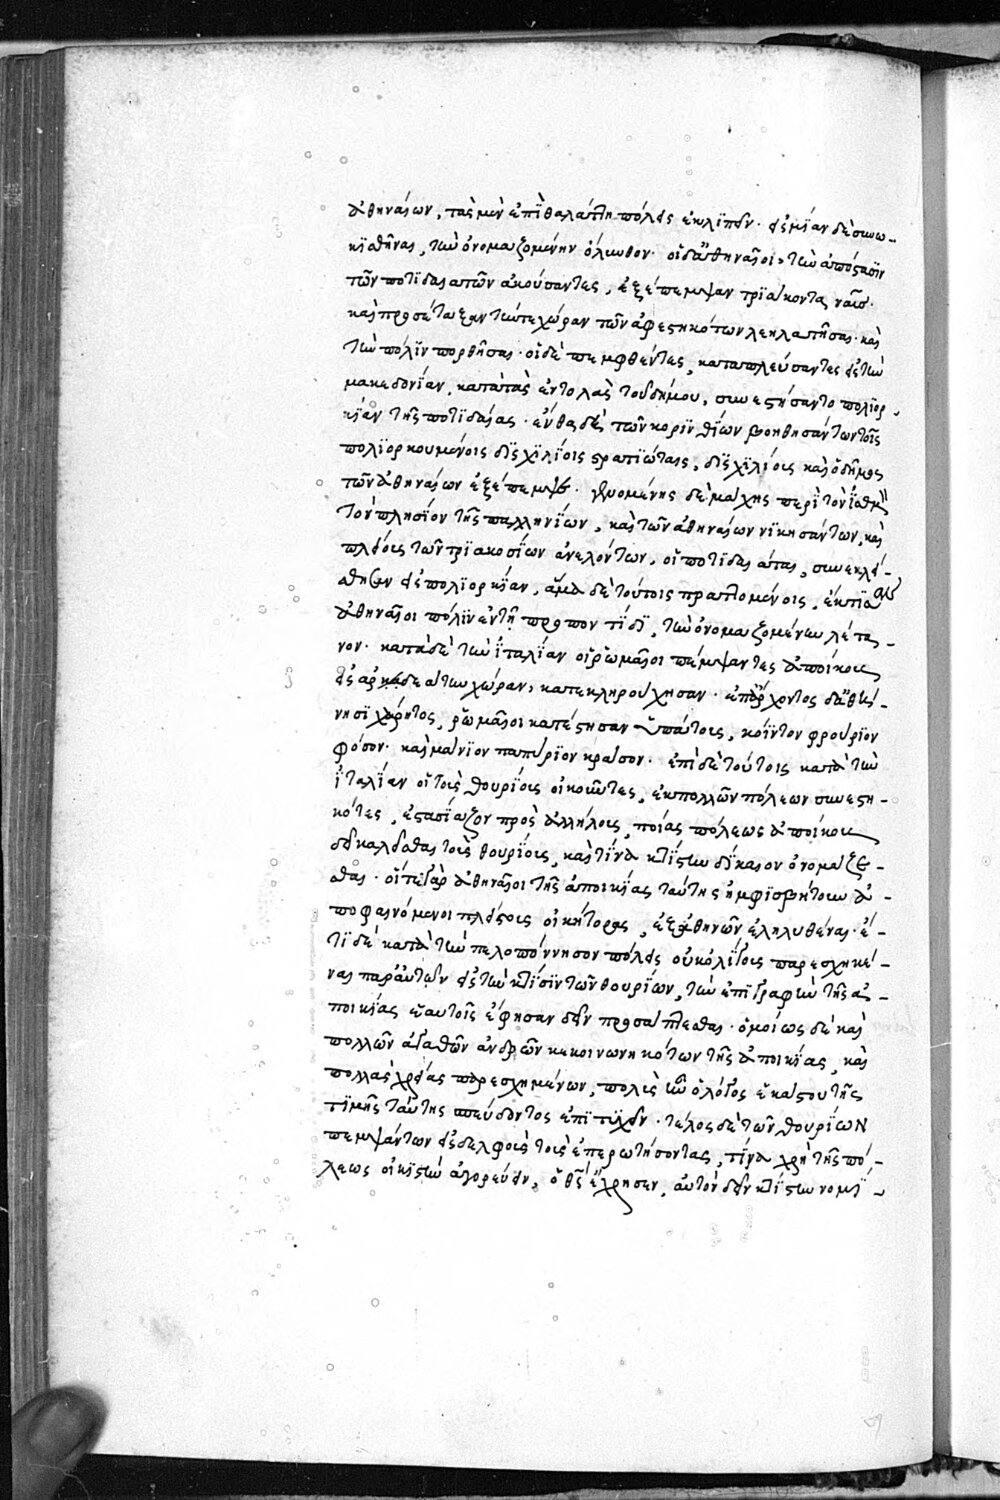 ἀθηναίων, τὰς μὲν ἐπὶ θαλάττῃ πόλεις ἐκλιπεῖν· εἰς μίαν δὲ συνῳ-
κίσθηναι, τὴν ὀνομαζομένην ὄλυνθον· οἱ δ' ἀθηναῖοι, τὴν ἀπόστασιν
τῶν ποτιδαιατῶν ἀκούσαντες, ἐξέπεμψαν τριάκοντα ναῦς·
καὶ προσέταξαν τήν τε χώραν τῶν ἀφεστηκότων λεηλατῆσαι· καὶ
τὴν πόλιν πορθῆσαι· οἱ δὲ πεμφθέντες, καταπλεύσαντες εἰς τὴν
μακεδονίαν, κατὰ τὰς ἐντολὰς τοῦ δήμου, συνεστήσαντο πολιορ-
κίαν τῆς ποτιδαίας· ἔνθα δὲ τῶν κορινθίων βοηθησάντων τοῖς
πολιορκουμένοις δισχιλίοις στρατιώταις, δισχιλίοις καὶ ὁ δῆμος
τῶν ἀθηναίων ἐξέπεμψε· γενομένης δὲ μάχης περὶ τὸν ἰσθμὸν
τὸν πλησίον τῆς παλληνίων, καὶ τῶν ἀθηναίων νικησάντων, καὶ
πλείους τῶν τριακοσίων ἀνελόντων, οἱ ποτιδαιᾶται, συνεκλεί-
σθησαν εἰς πολιορκίαν, ἅμα δὲ τούτοις πραττομένοις, ἔκτισαν
ἀθηναῖοι πόλιν ἐν τῇ προποντίδι, τὴν ὀνομαζομένην λέτα-
νον· κατὰ δὲ τὴν ἰταλίαν οἱ ῥωμαῖοι πέμψαντες ἀποίκους
εἰς ἀρκαδεάτην χώραν, κατεκληρούχησαν· ἐπ' ἄρχοντος δ' ἀθή-
νησι χάρητος, ῥωμαῖοι κατέστησαν ὑπάτους, κόϊντον φρούριον
φόσον· καὶ μάνιον παπείριον κράσον· ἐπὶ δὲ τούτοις κατὰ τὴν
ἰταλίαν οἱ τοὺς θουρίους οἰκοῦντες, ἐκ πολλῶν πόλεων συνεστη-
κότες, ἐστασίαζον πρὸς ἀλλήλους, ποίας πόλεως ἀποίκους
δεῖ καλεῖσθαι τοὺς θουρίους, καὶ τίνα κτίστην δίκαιον ὀνομάζε-
σθαι· οἵ τε γὰρ ἀθηναῖοι τῆς ἀποικίας ταύτης ἠμφισβήτουν ἀ-
ποφαινόμενοι πλείστους οἰκήτορας, ἐξ ἀθηνῶν ἐληλυθέναι· ἔ-
τι δὲ κατὰ τὴν πελοπόννησον πόλεις οὐκ ὀλίγους παρεσχηκέ-
ναι παρ' αὐτῶν εἰς τὴν κτίσιν τῶν θουρίων, τὴν ἐπιγραφὴν τῆς ἀ-
ποικίας ἑαυτοῖς ἔφησαν δεῖν προσάπτεσθαι· ὁμοίως δὲ καὶ
πολλῶν ἀγαθῶν ἀνδρῶν κεκοινωνηκότων τῆς ἀποικίας, καὶ
πολλὰς χρείας παρεσχημένων, πολὺς ἦν ὁ λόγος ἑκάστου τῆς
τιμῆς ταύτης σπεύδοντος ἐπιτυχεῖν· τέλος δὲ τῶν θουρίων
πεμψάντων εἰς δελφοὺς τοὺς ἐπερωτήσοντας, τίνα χρὴ τῆς πό-
λεως οἰκιστὴν ἀγορεύειν, ὁ θεὸς ἔχρησεν, αὐτὸν δεῖν κτίστην νομί-